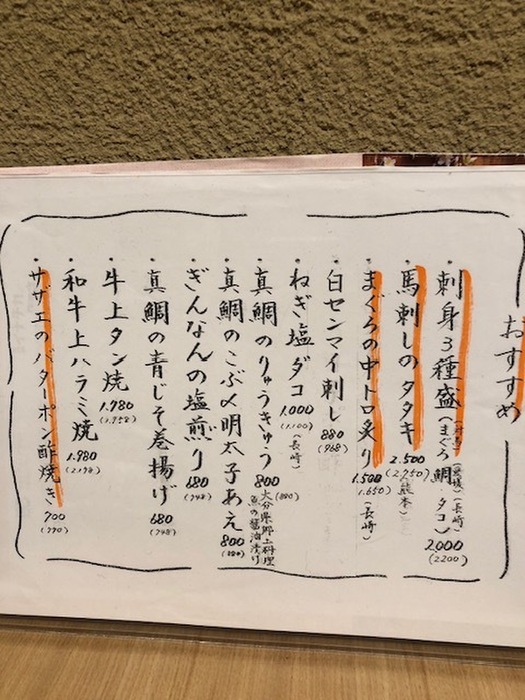 おすすめ
・刺身3種盛(まぐろ(対馬)鯛(愛媛)・タコ(長崎)) 2000 (2200)
・馬刺しのタタキ 2.500 (2.750) (熊本)
・まぐろの中トロ炙り 1.500 (1.650) (長崎)
・白センマイ刺し 880 (968)
・ねぎ塩ダコ 1.000 (1.100) (長崎)
・真鯛のりゅうきゅう 800 (880) 大分県郷土料理 魚の醤油漬け
・真鯛のこぶ〆明太子あえ 800 (880)
・ぎんなんの塩煎り 680 (748)
・真鯛の青じそ巻揚げ 680 (748)
・牛上タン焼 1.780 (1.958)
・和牛上ハラミ焼 1.980 (2.178)
・サザエのバターポン酢焼き 700 (770)